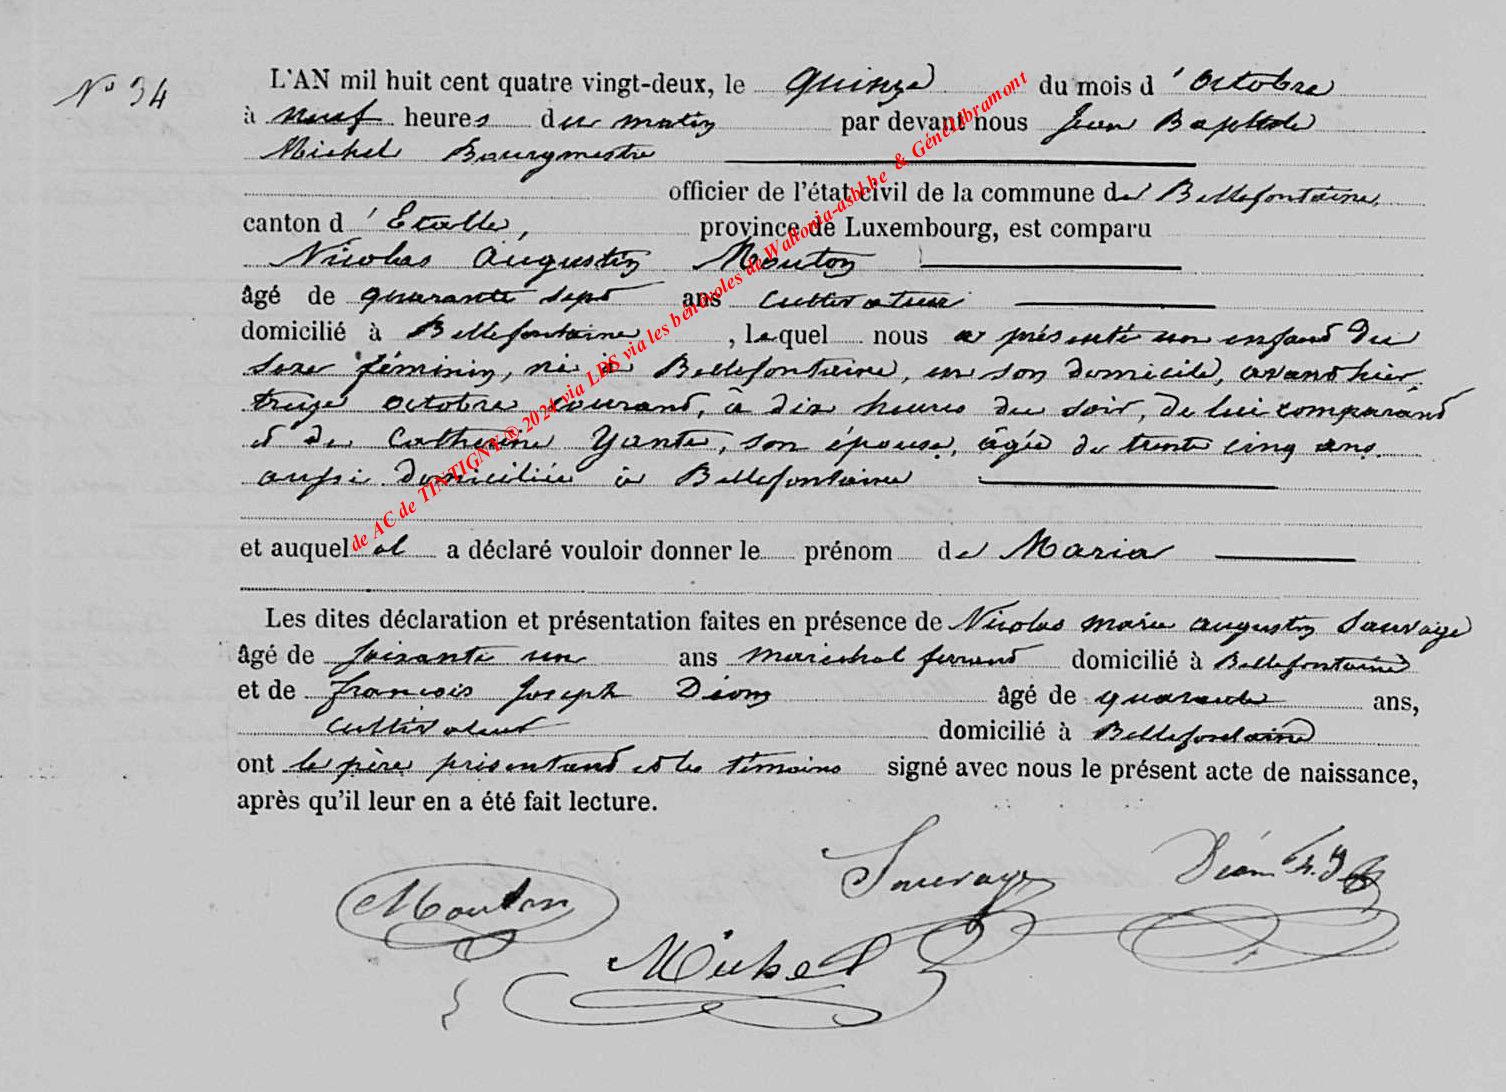 N° 34
L'AN mil huit cent quatre vingt-deux, le quinze du mois d'octobre
à neuf heures du matin par devant nous Jean Baptiste
Michel Bourgmestre
officier de l'état civil de la commune de Bellefontaine,
canton d'Etalle, province de Luxembourg, est comparu
Nicolas Augustin Mouton
âgé de quarante sept ans cultivateur
domicilié à Bellefontaine, lequel nous a présenté un enfant du
sexe féminin, né à Bellefontaine, en son domicile, avant hier,
treize octobre courant, à dix heures du soir, de lui comparant
et de Catherine Yante, son épouse, âgée de trente cinq ans.
aussi domiciliée à Bellefontaine
et auquel il a déclaré vouloir donner le prénom de Maria
Les dites déclaration et présentation faites en présence de Nicolas marie augustin Sauvage
âgé de soixante un ans maréchal ferrant domicilié à Bellefontaine
et de françois Joseph Dion âgé de quarante ans,
cultivateur domicilié à Bellefontaine
ont le père présentant et les témoins signé avec nous le présent acte de naissance,
après qu'il leur en a été fait lecture.
Mouton Sauvage Dion F. J.
Michel
de AC de TINTIGNY © 2024 via LDS via les bénévoles de Wallonia-asbl.be & GénéLibramont